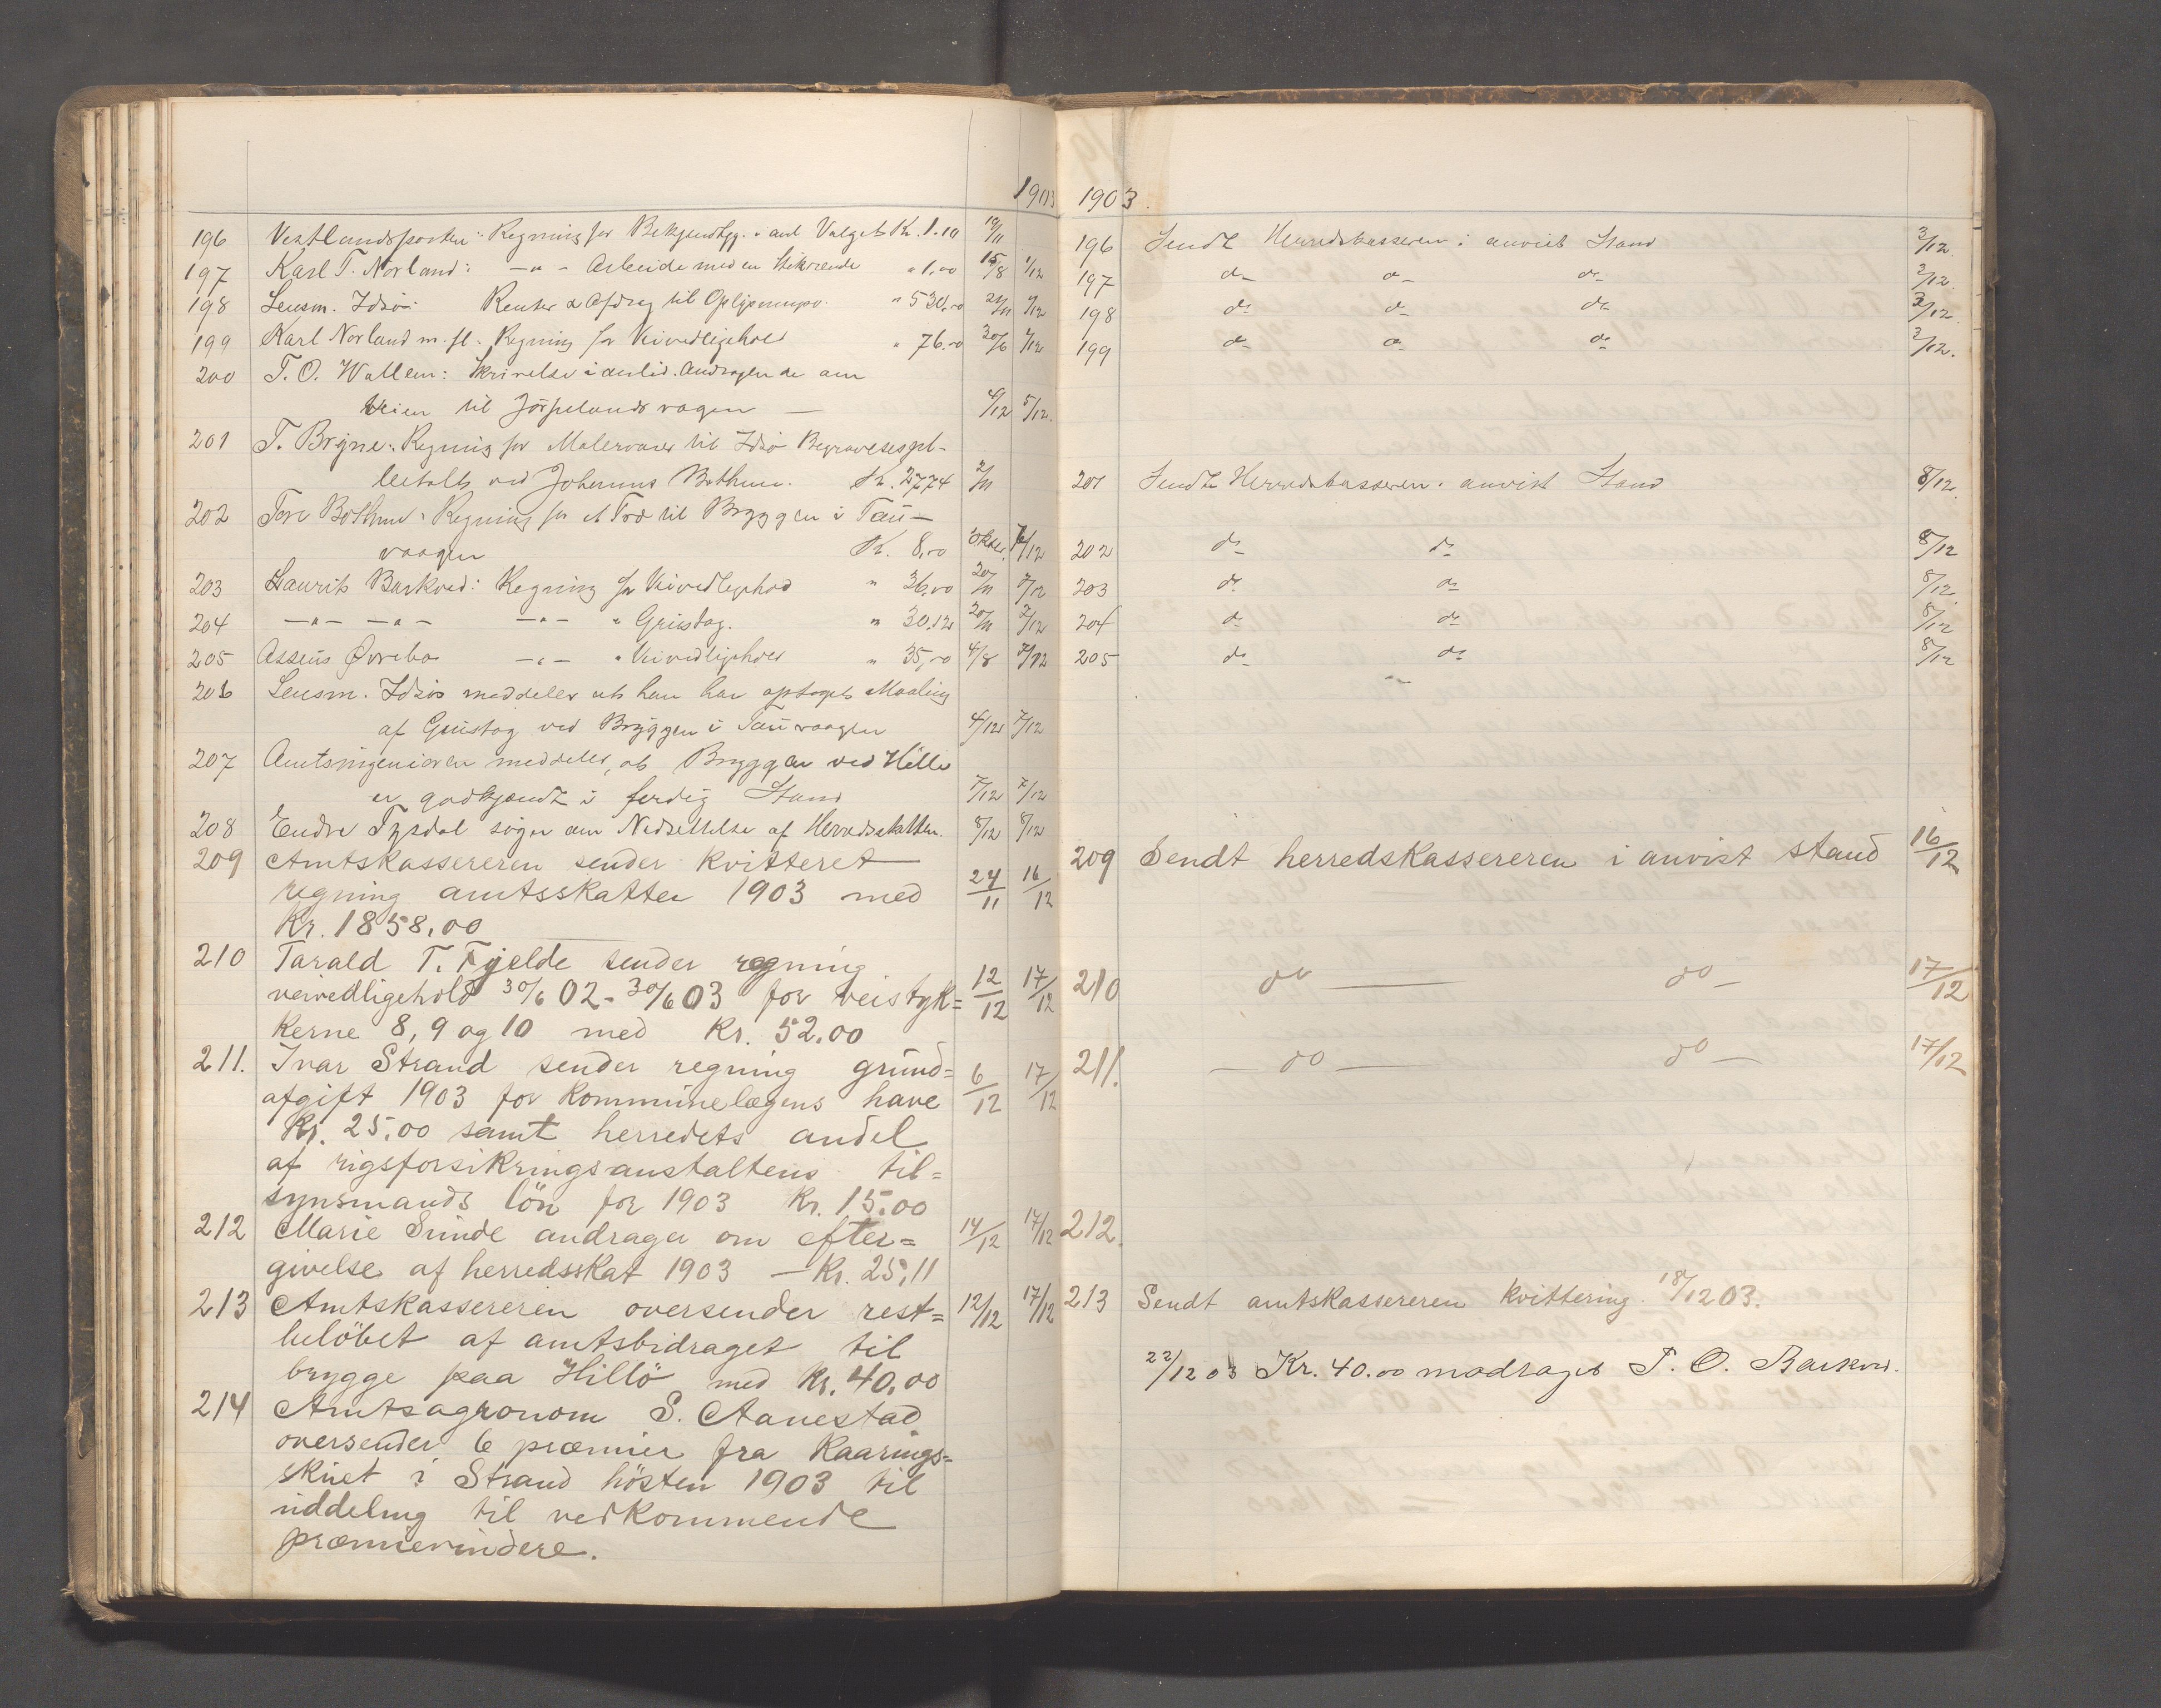 1903
196 Vestlandsposten: Regning for Bekjendtgj. ant Valget Kr. 1.10 10/11
197 Karl T. Norland: —"— Arbeide med en " 1,00 15/8 1/12
198 Lensm. Idsö: Renter & Afdrag til " 530,00 21/11 1/12
199 Karl Norland m. fl. Regning for Veivedligehold " 76.00 30/6 1/12
200 T. O. Wallem: Skrivelse i anled. Andragende om
Veien til Jörpelandsvagen — 4/12 5/12.
201 T. Bryne: Regning for Malervarer til Idsö
betalt ved Johannes Bothun. Kr. 27,74 2/11
202 Tore Bothun: Regning for et Træ til Bryggen i Tau-
vaagen Kr. 8,00 7/12
203 Laurits Barkved: Regning for Veivedligehold " 36,00 20/11 7/12
204 —"— —"— —"— " Grustag. " 30,12 20/11 7/12
205 Assens Øvrebø —"— " Veivedligehold " 35,00 4/8 7/12
206 Lensm. Idsö meddeler at han har optaget Maaling
af Grustag ved Bryggen i Tauvaagen 4/12 7/12
207 Amtsingeniøren meddeler, at Bryggen ved Hille
er godkjendt i ferdig Stand 7/12 7/12
208 Endre Tysdal søger om Nedsettelse af Herredsskatten. 8/12 8/12
209 Amtskassereren sender kvitteret
regning amtsskatten 1903 med 24/11 16/12
Kr. 1858,00
210 Tarald T. Fjelde sender regning
veivedligehold 30/6 02 - 30/6 03 for veistyk= 12/12 17/12
kerne 8, 9 og 10 med Kr. 52.00
211. Ivar Strand sender regning grund=
afgift 1903 for kommunelægens have 6/12 17/12
Kr. 25,00 samt herredets andel
af rigsforsikringsanstaltens til=
synsmands lön for 1903 Kr. 15.00
212 Marie Sunde andrager om efter= 14/12 17/12
givelse af herredsskat 1903 — Kr. 25,11
213 Amtskassereren oversender rest= 12/12 17/12
belöbet af amtsbidraget til
brygge paa Hillö med Kr. 40,00
214 Amtsagronom S. Aanestad
oversender 6 præmier fra Kaarings=
skuet i Strand hösten 1903 til
uddeling til vedkommende
præmievindere.
1903.
196 Sendt Herredskasseren i anvist Stand 3/12.
197 do do do 3/12.
198 do do do 3/12.
199 do do do 3/12.
201 Sendt Herredskasseren i anvist Stand 8/12.
202 do do 8/12
203 do do 8/12.
204 do do 8/12
205 do do 8/12
209 Sendt herredskassereren i anvist stand 16/12
210 do — do — 17/12
211. — do — do — 17/12
212.
213 Sendt amtskassereren kvittering 18/12 03.
22/12 03 Kr. 40.00 modtaget T. O. Barkved.